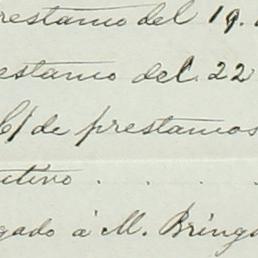 restamo del 19.
estamo del 22
C/ de prestamos
utivo . . . .
gado á M. Bringa